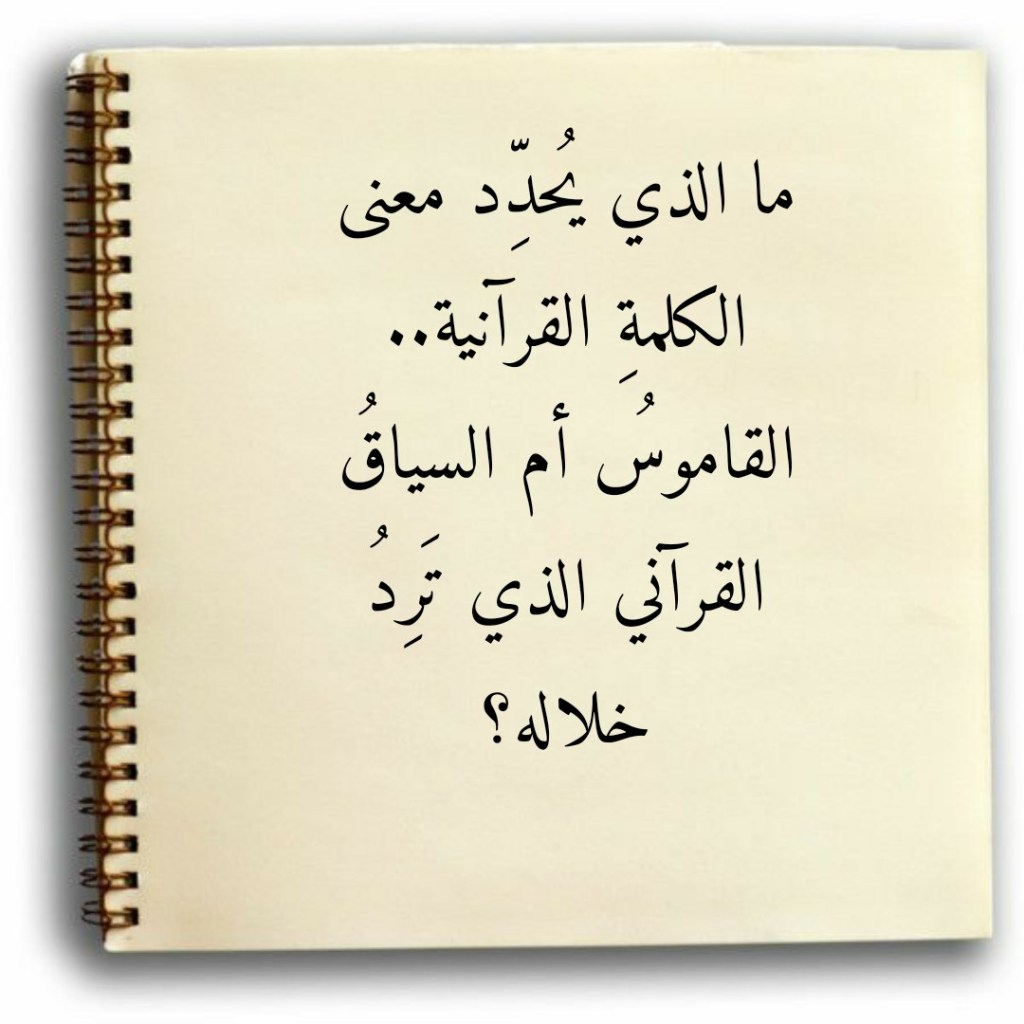 ما الذي يُحدِّد معنى
الكلمةِ القرآنية..
القاموسُ أم السياقُ
القرآني الذي تَرِدُ
خلاله؟